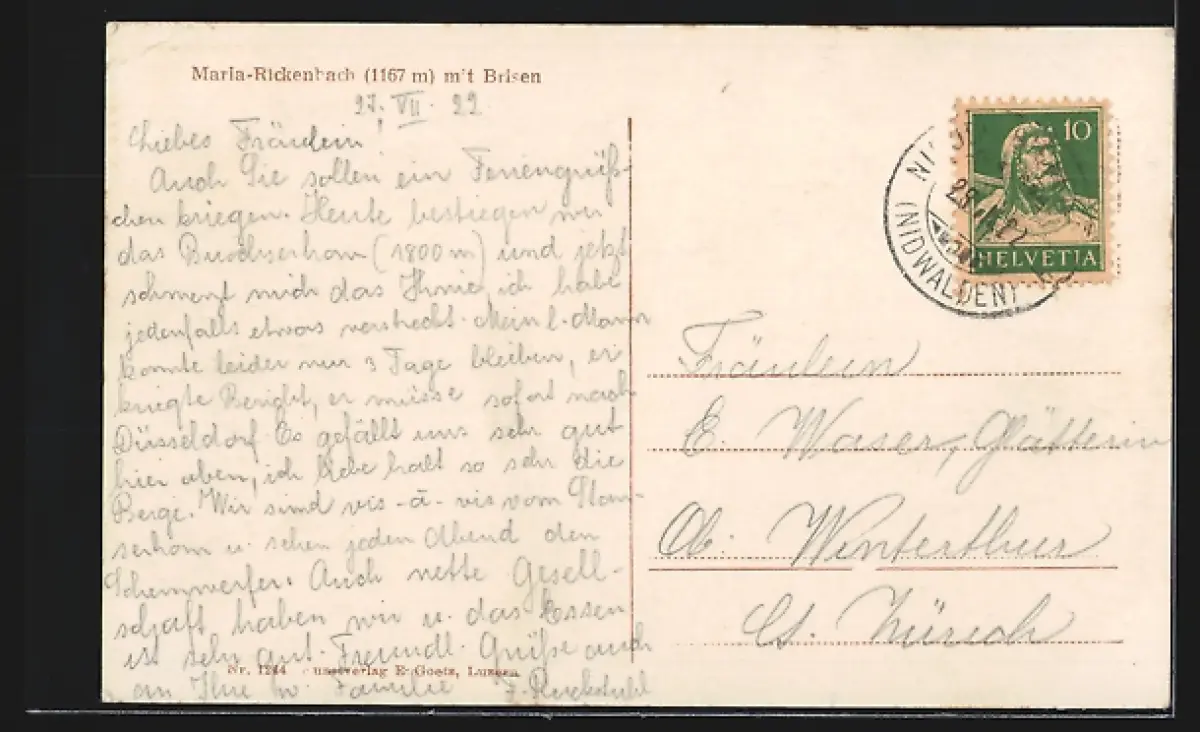 Maria-Rickenbach (1167 m) mit Brisen
27. VII. 22
Liebes Fräulein!
Auch Sie sollen ein Feriengrüß-
chen kriegen. Heute bestiegen wir
das Buochserhorn (1800 m) und jetzt
schmerzt mich das Knie, ich habe
jedenfalls etwas verstreckt. Mein l. Mann
konnte leider nur 3 Tage bleiben, er
kriegte Bericht, er müsse sofort nach
Düsseldorf. Es gefällt uns sehr gut
hier oben, ich liebe halt so sehr die
Berge. Wir sind vis-à-vis vom Stan-
serhorn u. sehen jeden Abend den
Scheinwerfer. Auch nette Gesell-
schaft haben wir u. das Essen
ist sehr gut. Freundl. Grüße auch
an Ihre w. Familie F. Ruckstuhl
Nr. 1244 Kunstverlag E. Goetz, Luzern
10
HELVETIA
(NIDWALDEN)
Fräulein
E. Waser, Glätterin
Ob. Winterthur
Ct. Zürich